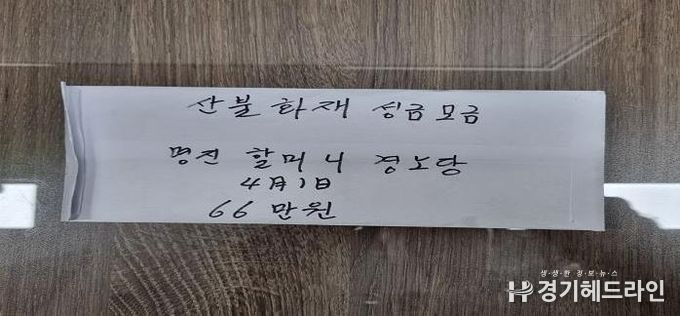 산불 화재 성금모금
명진 할머니 경노당
4月1日
66만원
생생한 정보뉴스
경기헤드라인